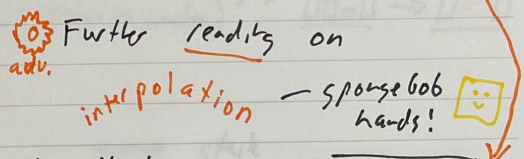 Further reading on
adv.
interpolation – spongebob
hands!